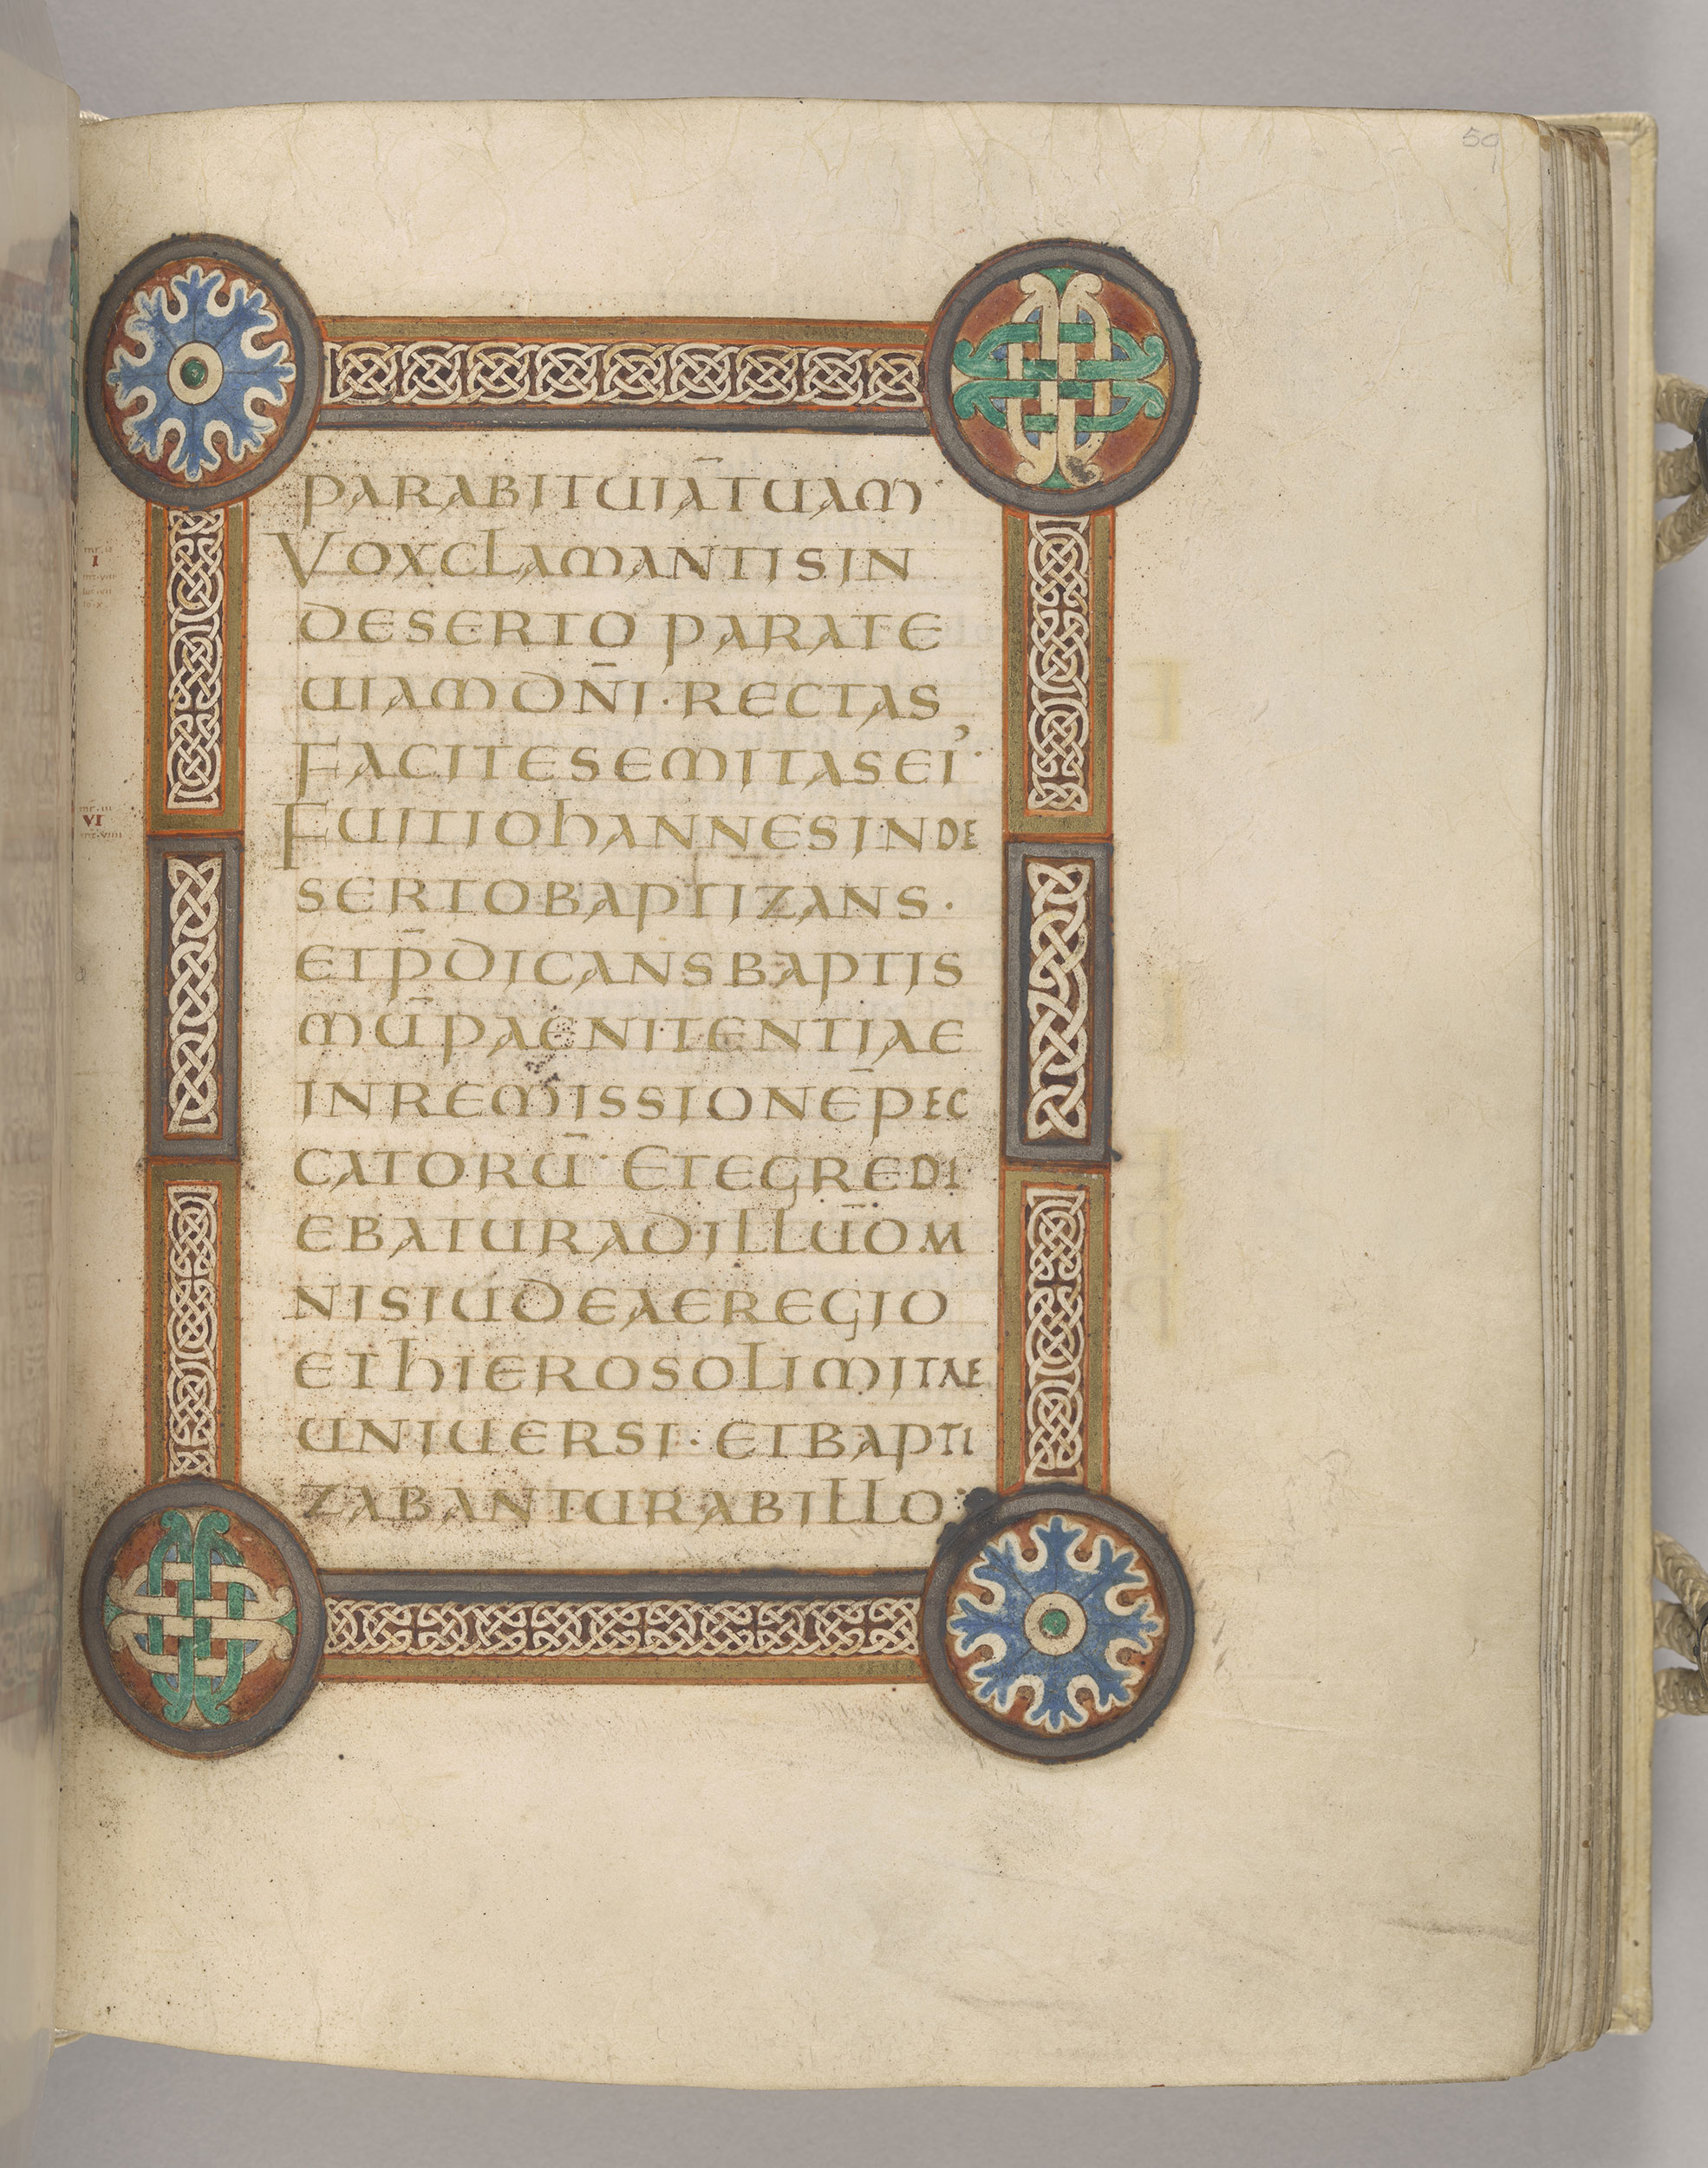 59
PARABIT UIĀ TUAM·
VOX CLAMANTIS IN
DESERTO PARATE
UIAM DN̄I· RECTAS
FACITE SEMITAS EI᾿·
FUIT IOHANNES IN DE
SERTO BAPTIZANS·
ET P̄DICANS BAPTIS
MŪ PAENITENTIAE
IN REMISSIONĒ PEC
CATORŪ· ET EGREDI
EBATUR AD ILLŪ OM
NIS IUDEAE REGIO
ET HIEROSOLIMITAE
UNIUERSI· ET BAPTI
ZABANTUR AB ILLO
I
VI